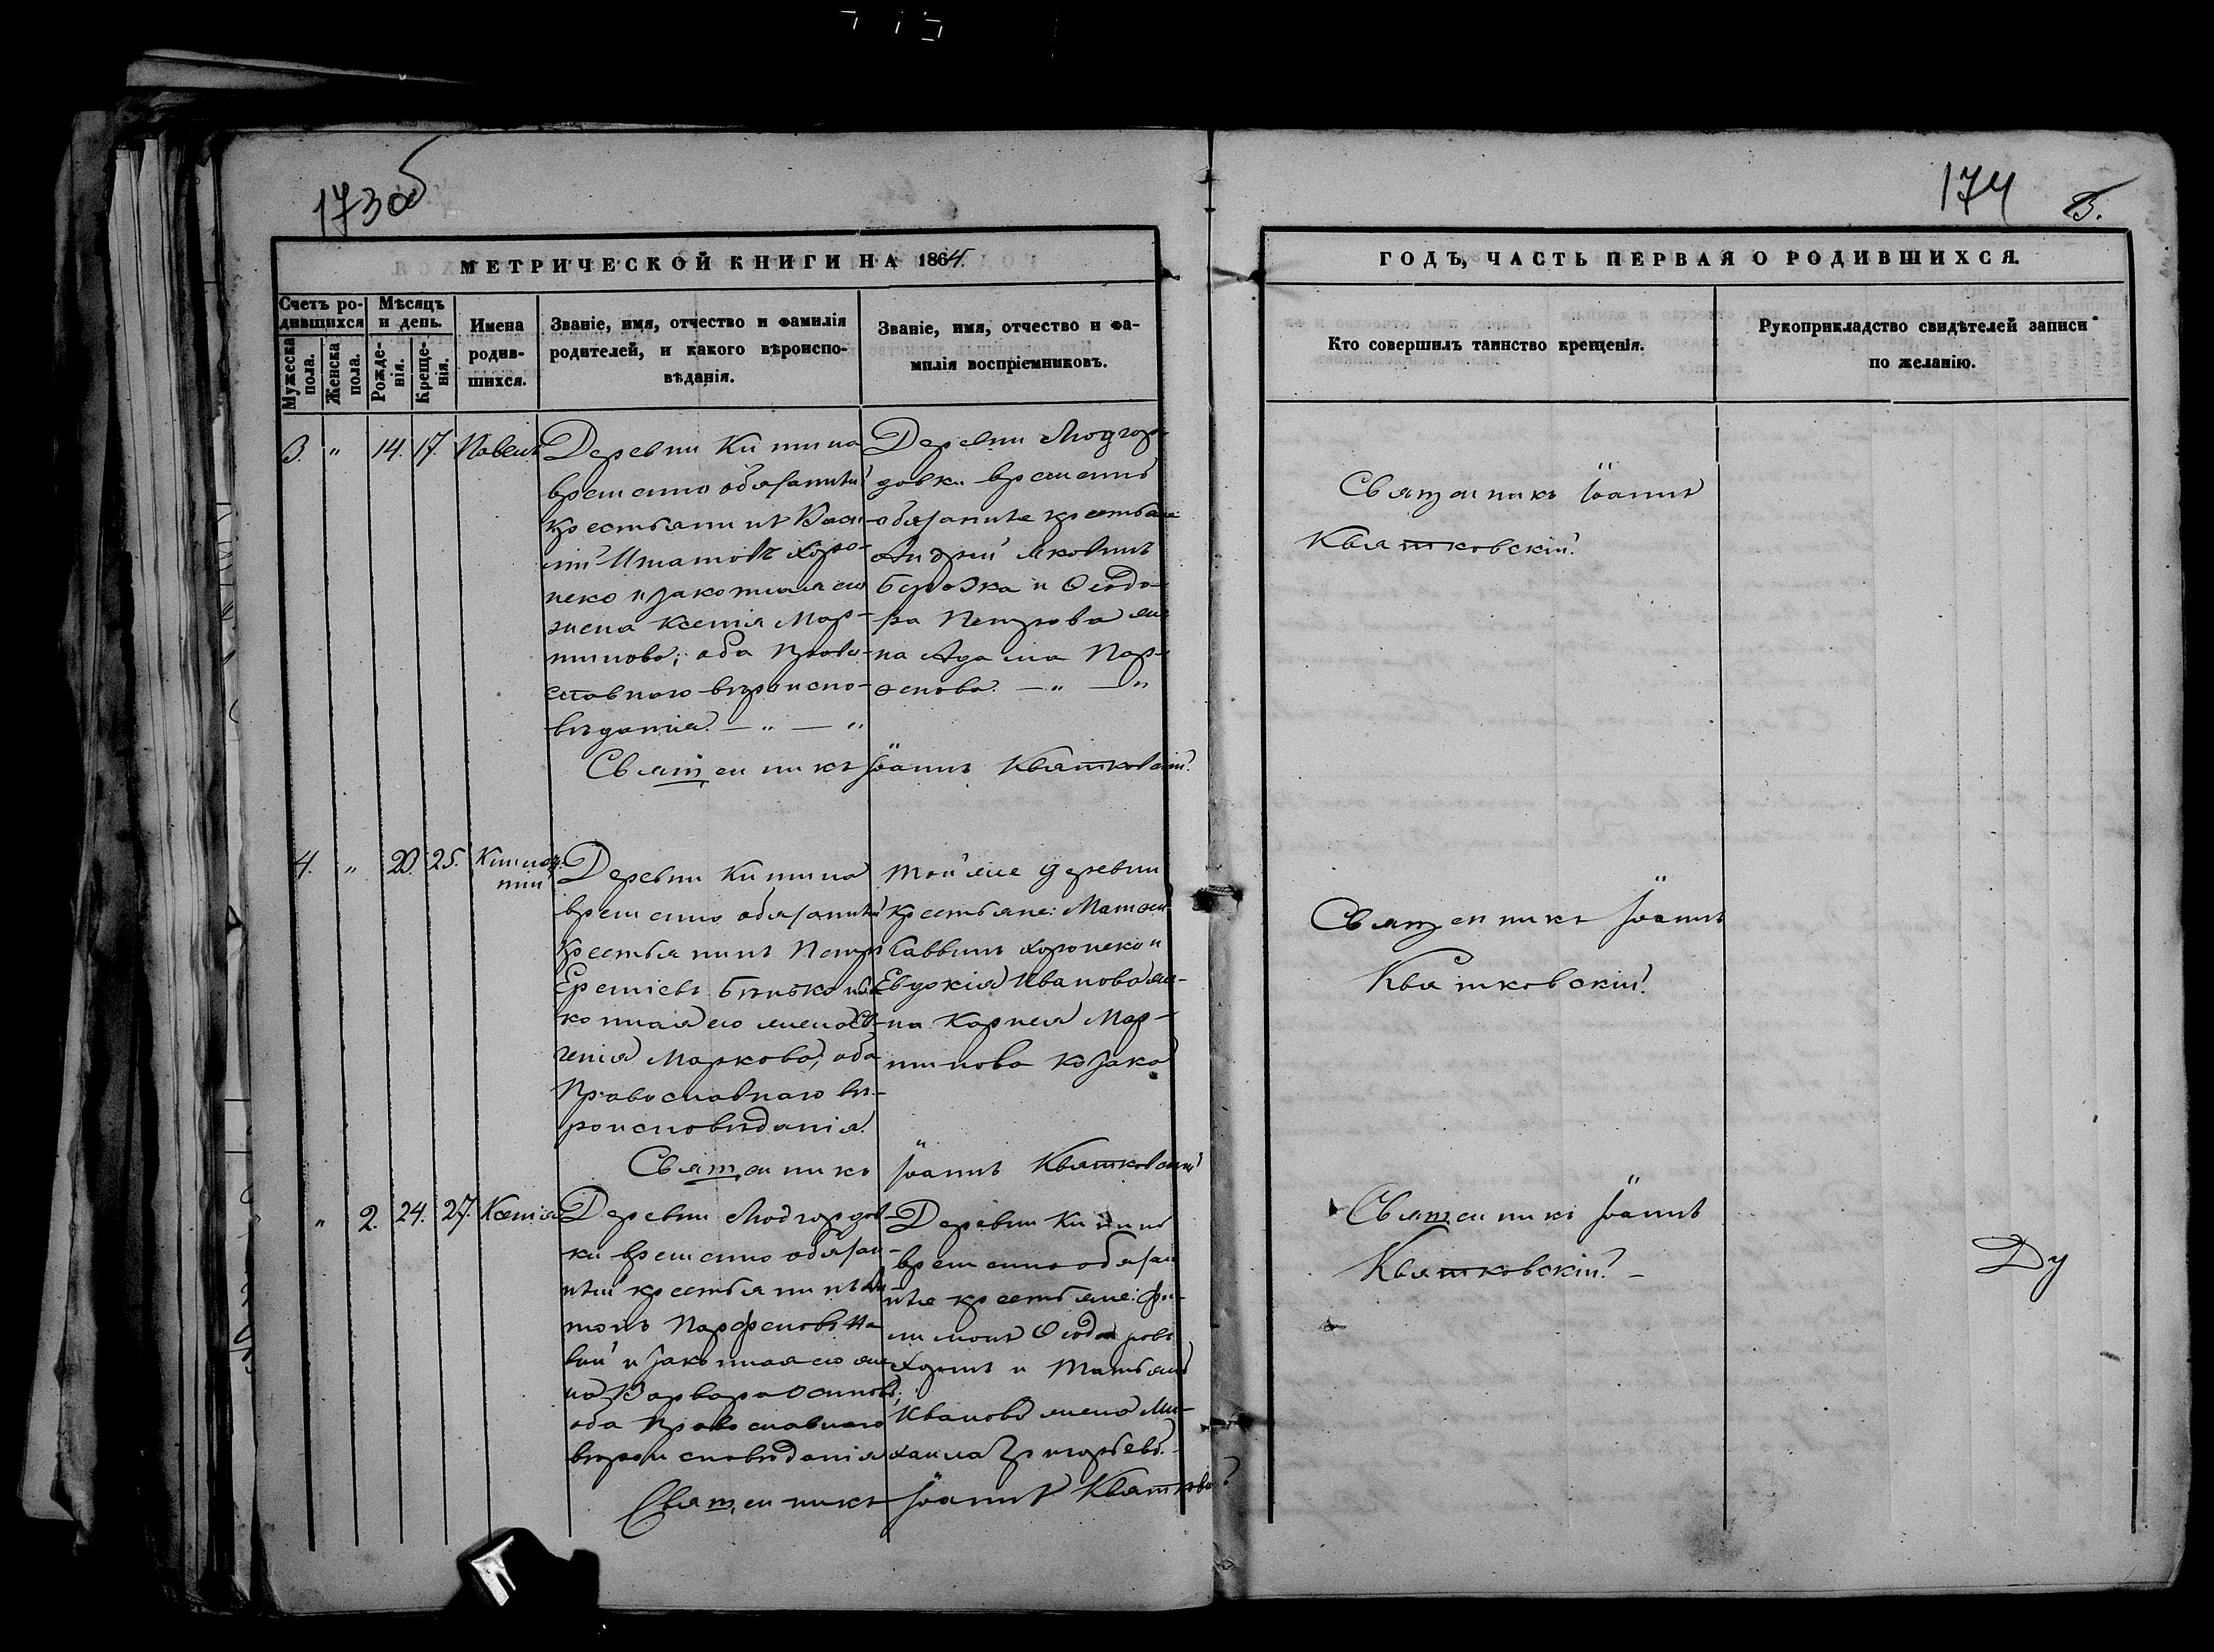 173об
174
МЕТРИЧЕСКОЙ КНИГИ НА 1864
ГОДЪ, ЧАСТЬ ПЕРВАЯ О РОДИВШИХСЯ.
Счетъ ро-
дившихся
Мужеска
пола.
Женска
пола.
Мѣсяцъ
и день.
Рожде-
нія.
Креще-
нія.
Имена
родив-
шихся.
Званіе, имя, отчество и фамилія
родителей, и какого вѣроиспо-
вѣданія.
Званіе, имя, отчество и фа-
милія воспріемниковъ.
Кто совершилъ таинство крещенія.
Рукоприкладство свидѣтелей записи
по желанію.
3. " 14. 17. Павелъ
Деревни Китина
временно обязанный
крестьянинъ Васи-
лій Игнатовъ Хоро-
неко и законная его
жена Ксенія Мар-
тинова; оба Право-
славнаго вѣроиспо-
вѣданія. — " — "
Деревни Людгор-
довки временно
обязанные крестьяне
Андрей Яковлевъ
Березка и Ѳеодо-
ра Петрова же-
на Адама Пар-
ѳенова. — " — "
Священникъ Іоаннъ Квятковскій.
Священникъ Іоаннъ
Квятковскій.
4. " 20. 25.
Деревни Китина
временно обязанный
крестьянинъ Петръ
законная его жена
Маркова; оба
Православнаго вѣ-
роисповѣданія.
Той же деревни
крестьяне: Матѳей
Саввинъ Хоронеко и
Евдокія Иванова же-
на Карнея Мар-
тинова Козака
Священникъ Іоаннъ Квятковскій
Священникъ Іоаннъ
Квятковскій.
" 2. 24. 27. Ксенія
Деревни Людгордов-
ки временно обязан-
ный крестьянинъ Ан-
тонъ Парфеновъ
и законная его же-
на Варвара Осипова;
оба Православнаго
вѣроисповѣданія
Деревни Китина
временно обязан-
ные крестьяне: Фи-
лимонъ Ѳеодоровъ
и Татьяна
Иванова жена Ми-
хаила Григорьева.
Священникъ Іоаннъ Квятковскій
Священникъ Іоаннъ
Квятковскій. —